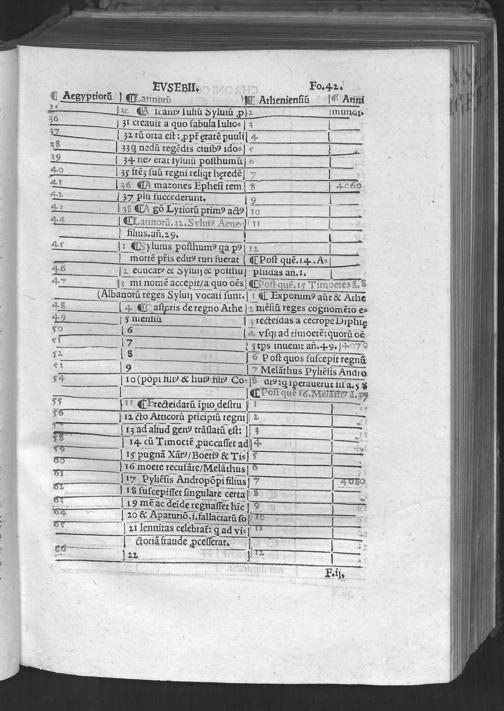 EVSEBII. Fo.42.
¶ Aegyptiorũ ¶ Latinorũ ¶ Atheniensiũ ¶ Anni
2 mundi.
36 31 creauit a quo fabula Iulio-
37 32 rũ orta est: 4
38 33 nedũ regẽdis ciuibꝰ ido- 5
39 34 neꝰ erat sylaiũ posthumũ 6
40 35 suũ regni reliqt hęredẽ 7
41 36 ¶A mazones Ephesi tem 8 4060
42 37 plũ succederunt. 9
43 38 ¶A gõ Lyriorũ primꝰ actꝰ 10
44 ¶Latinorũ. 32. Syluiꝰ Aene- 11
filius. añ. 29.
45 1 ¶Syluius posthumꝰ qa pꝰ 12
mortẽ pris editꝰ ruri fuerat ¶Post quẽ. 14. A-
46 2 educatꝰ & Syluij & posthu phidas añ. 1.
47 3 mi nomẽ accepit/a quo oẽs ¶Post quẽ. 15 Timoetes ã. 8
(Albanorũ reges Syluij vocati sunt. 1 ¶ Exponimꝰ aũt & Athe
48 4 ¶Castoris de regno Athe 2 niẽsiũ reges cognomẽto e-
49 5 niensiũ 3 recteidas a cecrope Diphię
50 6 4 vsqꝫ ad timoetẽ: quorũ oẽ
51 7 5 tps inuenit añ. 49. 4070
52 8 6 Post quos suscepit regnũ
53 9 7 Melãthus Pyliẽsis Andro
54 10 (põpi filiꝰ & huiꝰ filiꝰ Co- 8 drꝰ: q iperauerut iii a. 58
¶Post quẽ 16. Melãthꝰ ã. 37
55 11 ¶Erecteidarũ ipio destru 1
56 12 cto Atticorũ pricipiũ regni 2
57 13 ad aliud genꝰ trãslatũ est: 3
58 14 cũ Timoctẽ ꝓuocasset ad 4
59 15 pugnã Xãtꝰ/Boetiꝰ & Tis 5
60 16 moete recusãte/Melãthus 6
61 17 Pyliẽsis Andropõpi filius 7 4080
62 18 suscepisset singulare certa 8
63 19 mẽ ac deide regnasset hĩc 9
64 20 & Apaturiõ .i. fallaciarũ so 10
65 21 lennitas celebrat: q ad vi- 11
ctoriã fraude ꝓcesserat.
66 22 12
F.ij.